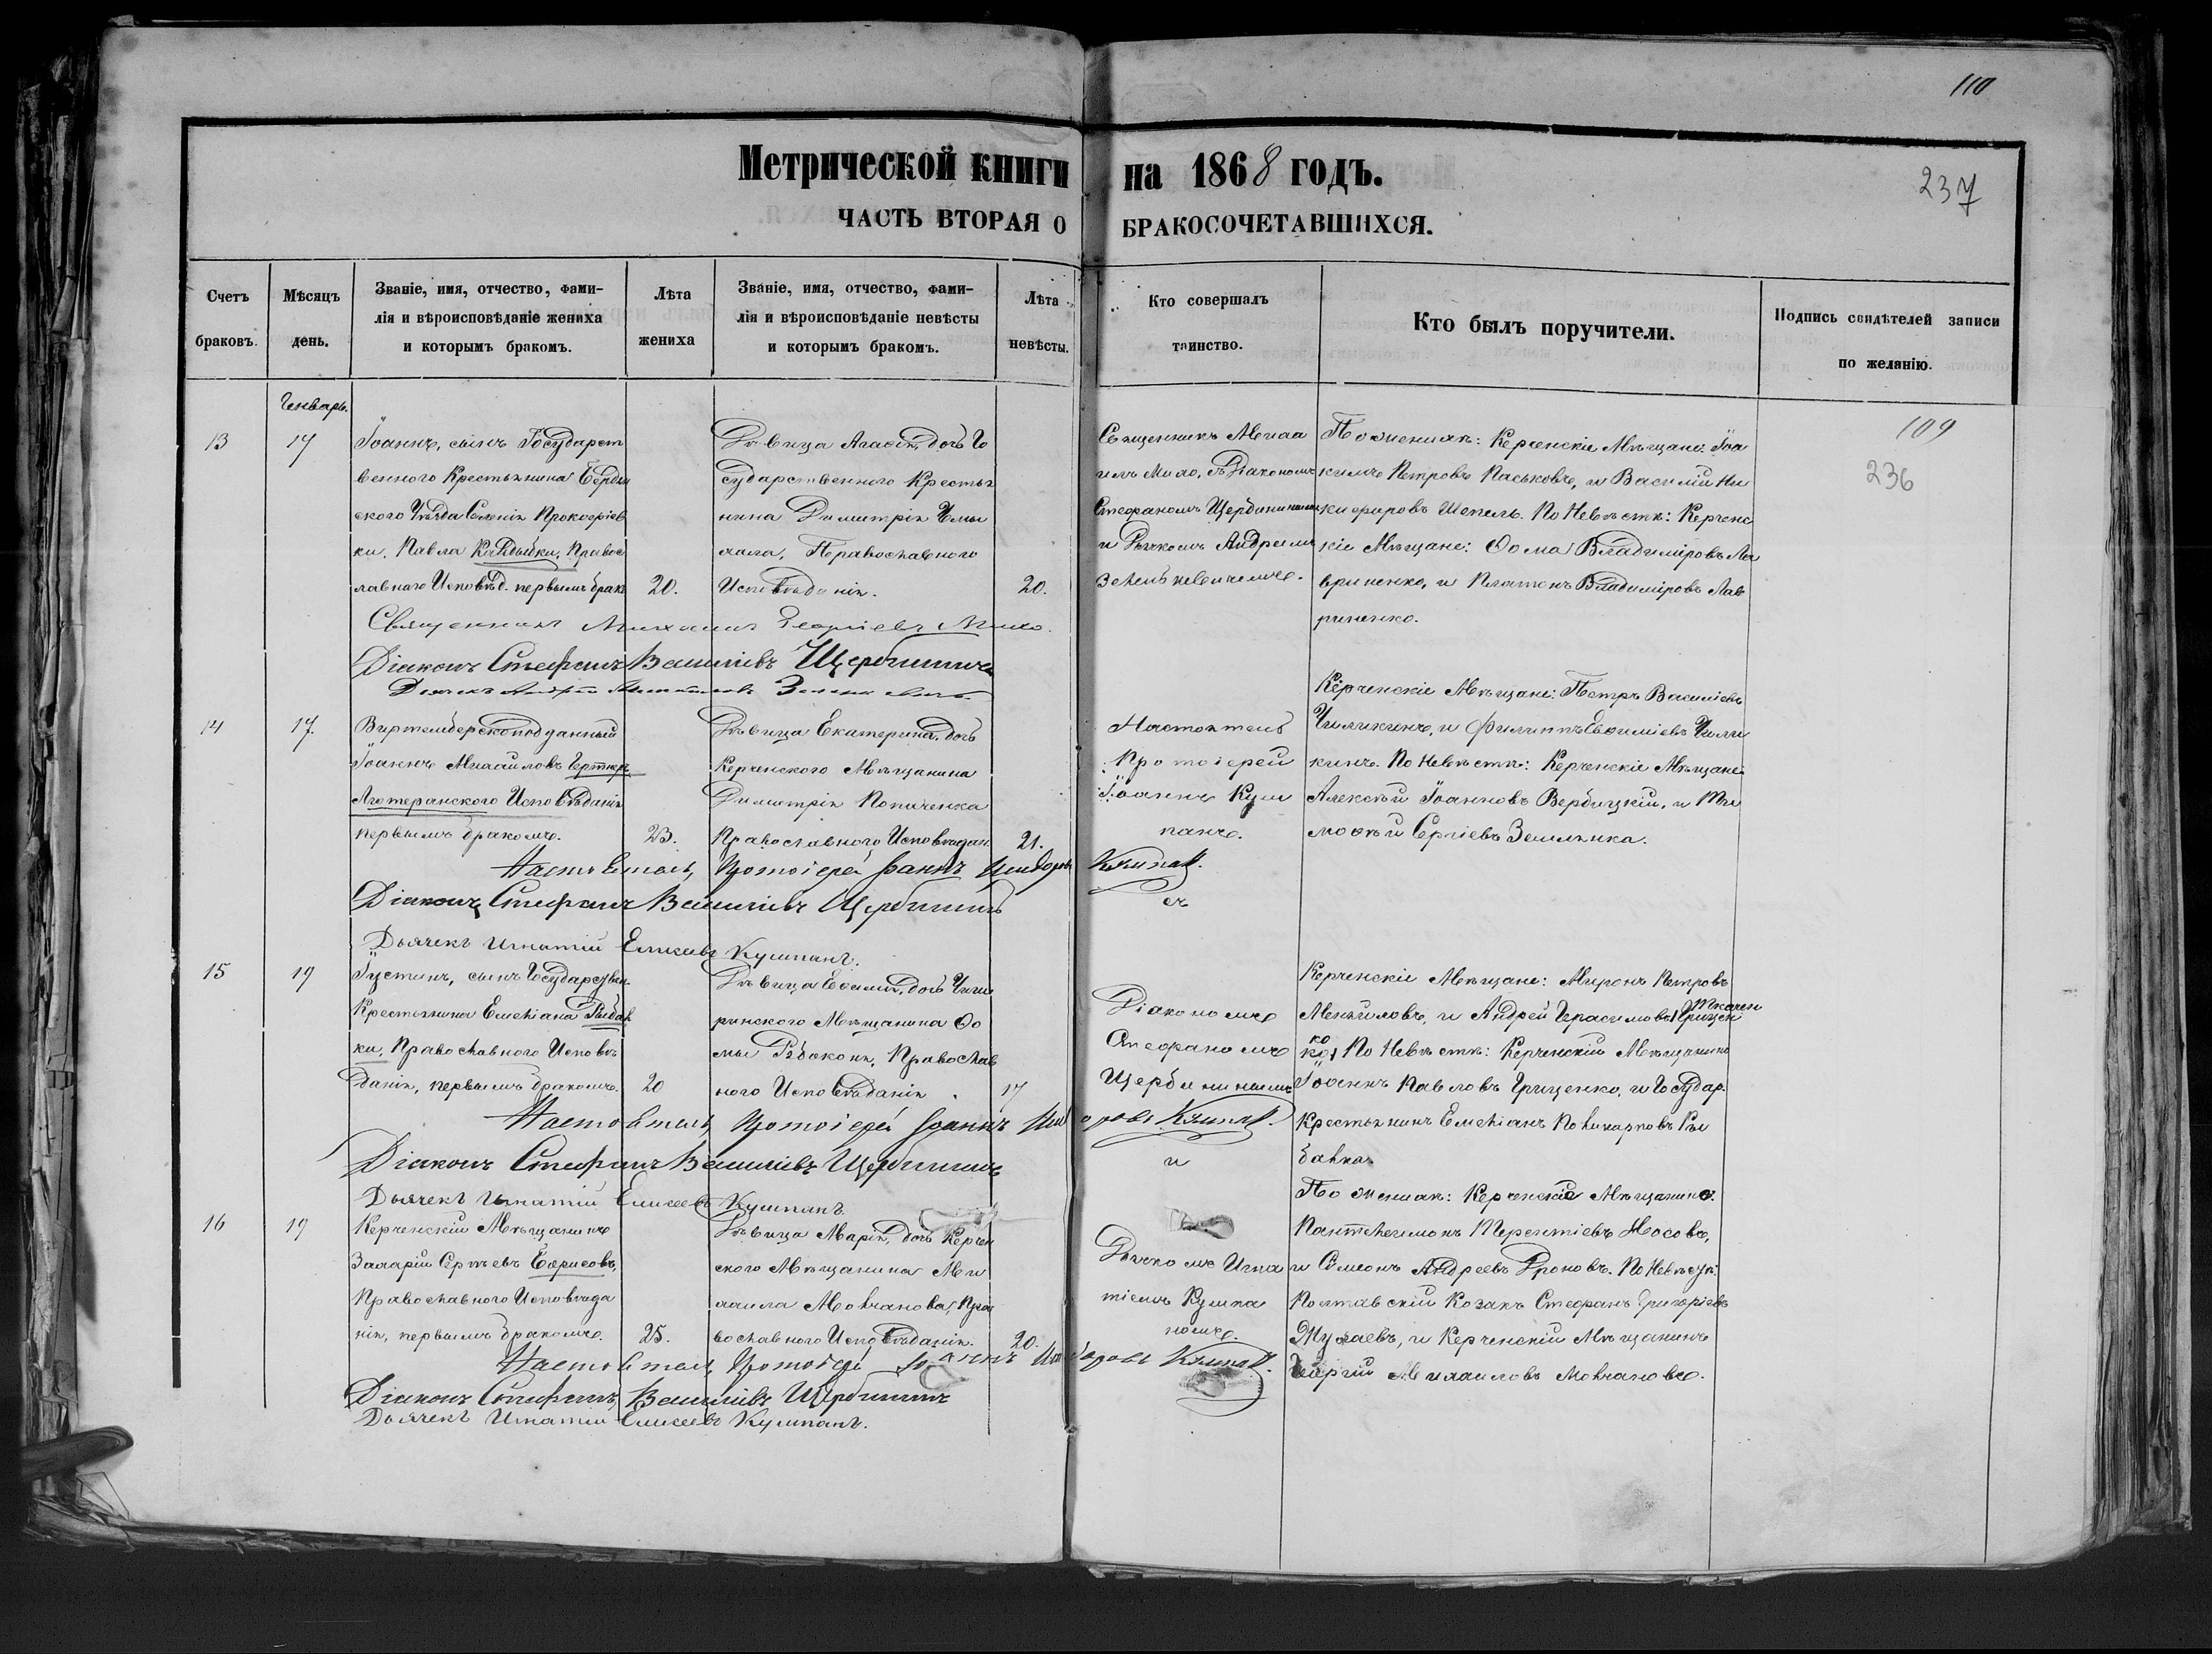 110
Метрической книги на 1868 годъ.
237
ЧАСТЬ ВТОРАЯ О БРАКОСОЧЕТАВШИХСЯ.
Счетъ браковъ.
Мѣсяцъ день.
Званіе, имя, отчество, фами-
лія и вѣроисповѣданіе жениха
и которымъ бракомъ.
Лѣта жениха
Званіе, имя, отчество, фами-
лія и вѣроисповѣданіе невѣсты
и которымъ бракомъ.
Лѣта невѣсты.
Кто совершалъ
таинство.
Кто былъ поручители.
Подпись свидѣтелей записи
по желанію.
Генварь.
109
236
13
17
Іоаннъ, сынъ Государст
веннаго Крестьянина Бердян
скаго Уѣзда Селенія Прокофіев
ки, Павла Кандыбки, Правос
лавнаго Исповѣд. первымъ брак
20.
Дѣвица Агафія, дочь Го
сударственного Крестья
нина Димитрія
Православного
Исповѣданія.
20.
Священникъ Миха
илъ Михо, съ Діакономъ
Стефаномъ Щербининымъ
и Дьячкомъ Андреемъ
Зеленкевичемъ.
По женихѣ: Керченскіе Мѣщане: Іоа
кимъ Петровъ Паськовъ, и Василій Ни
кифоровъ Шепель. По Невѣстѣ: Керченс
кіе Мѣщане: Ѳома Владиміровъ Ла
вриненко, и Платонъ Владиміровъ Лав
риненко.
Священникъ Михаилъ Георгіевъ Михо.
Діаконъ Стефанъ Василіевъ Щербининъ
Дьячекъ Андрей
14
17.
Виртембергскоподданный
Іоаннъ Михаиловъ Гертнеръ
Лютеранского Исповѣданія
первымъ бракомъ.
23.
Дѣвица Екатерина, дочь
Керченского Мѣщанина
Димитрія Попиченка
Православного Исповѣдан.
21.
Настоятель
Протоіерей
Іоаннъ Кум
панъ.
Керченскіе Мѣщане: Петръ Василіевъ
Чиликинъ, и Филиппъ Евѳиміевъ Чили
кинъ. По Невѣстѣ: Керченскіе Мѣщане:
Алексѣй Іоанновъ Вербицкій, и Ти
моѳей Сергіевъ Землянка.
Настоятель, Протоіерей Іоаннъ Исидоровъ Кумпан.
Діаконъ Стефанъ Василіевъ Щербининъ
съ
Дьячекъ Игнатій Елисеевъ Кумпанъ.
15
19
Іустинъ, сынъ Государствен.
Крестьянина Емеліана Рыбал
ки, Православного Исповѣ
данія, первымъ бракомъ.
20
Дѣвица Евѳимія, дочь Чиги
ринского Мѣщанина Ѳо
мы Рѣбоконя, Православ
ного Исповѣданія.
17
Діакономъ
Стефаномъ
Щербининымъ
Керченскіе Мѣщане: Миронъ Петровъ
и Андрей Герасимовъ Грицен
Ткачен
ко
ко, По Невѣстѣ: Керченскій Мѣщанинъ
Іоаннъ Павловъ Грищенко, и Государ.
Крестьянинъ Емеліанъ Поликарповъ Ры
балка.
Настоятель, Протоіерей Іоаннъ Исидоровъ Кумпан.
Діаконъ Стефанъ Василіевъ Щербининъ
и
Дьячекъ Игнатій Елисеевъ Кумпанъ.
16
19
Керченскій Мѣщанинъ
Захарій Сергѣевъ Борисовъ,
Православного Исповѣда
нія, первымъ бракомъ.
25.
Дѣвица Марія, дочь Керчен
ского Мѣщанина Ми
хаила Молчанова, Пра
вославного Исповѣданія.
20.
Дьячкомъ Игна
тіемъ Кумпа
номъ.
По женихѣ: Керченскіе Мѣщанинъ:
Пантелеимонъ Терентіевъ Носовъ,
и Симеонъ Андреевъ Дроновъ. По Невѣстѣ:
Полтавскій Козакъ Стефанъ Григоріевъ
и Керченскій Мѣщанинъ
Георгій Михаиловъ Молчановъ.
Настоятель, Протоіерей Іоаннъ Исидоровъ Кумпан.
Діаконъ Стефанъ Василіевъ Щербининъ
Дьячекъ Игнатій Елисеевъ Кумпанъ.